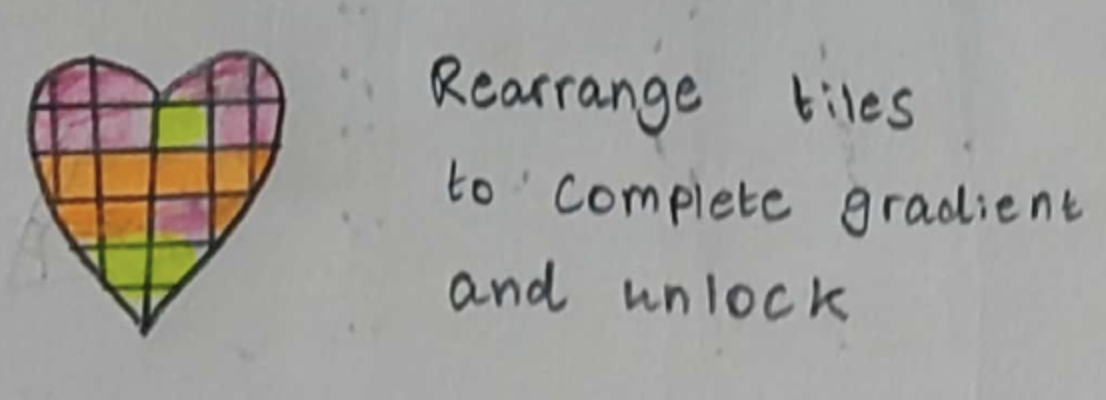 Rearrange tiles
to complete gradient
and unlock